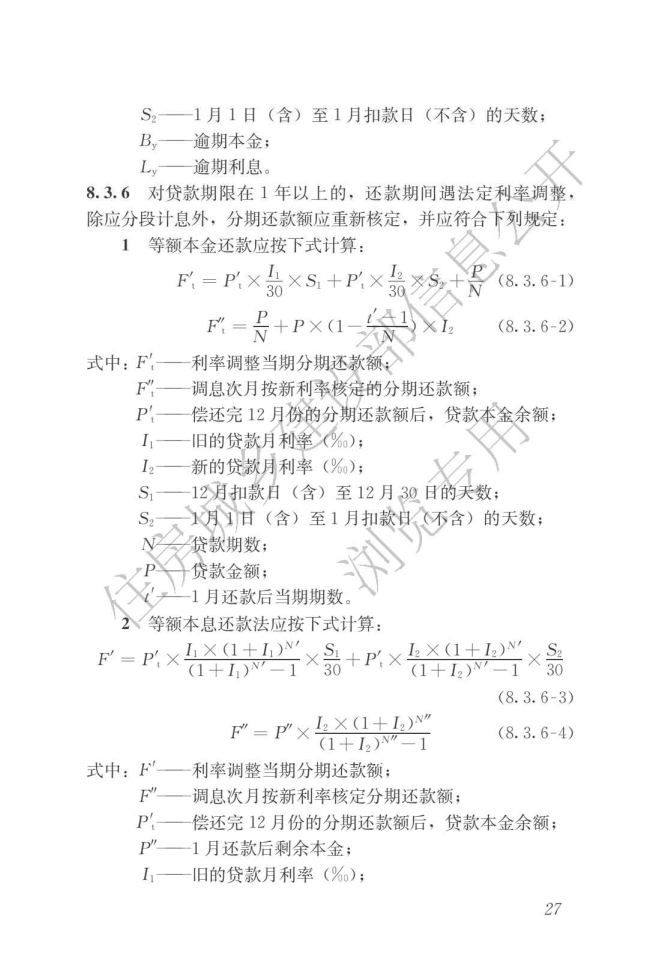 S₂——1月1日（含）至1月扣款日（不含）的天数；
Bᵧ——逾期本金；
Lᵧ——逾期利息。
8.3.6 对贷款期限在1年以上的，还款期间遇法定利率调整，
除应分段计息外，分期还款额应重新核定，并应符合下列规定：
1 等额本金还款应按下式计算：
F′ₜ = P′ₜ × I₁/30 × S₁ + P′ₜ × I₂/30 × S₂ + P/N (8.3.6-1)
F″ₜ = P/N + P × (1 − (t′−1)/N) × I₂ (8.3.6-2)
式中：F′ₜ——利率调整当期分期还款额；
F″ₜ——调息次月按新利率核定的分期还款额；
P′ₜ——偿还完12月份的分期还款额后，贷款本金余额；
I₁——旧的贷款月利率（‰）；
I₂——新的贷款月利率（‰）；
S₁——12月扣款日（含）至12月30日的天数；
S₂——1月1日（含）至1月扣款日（不含）的天数；
N——贷款期数；
P——贷款金额；
t′——1月还款后当期期数。
2 等额本息还款法应按下式计算：
F′ = P′ₜ × I₁×(1+I₁)^N′/((1+I₁)^N′−1) × S₁/30 + P′ₜ × I₂×(1+I₂)^N′/((1+I₂)^N′−1) × S₂/30
(8.3.6-3)
F″ = P″ × I₂×(1+I₂)^N″/((1+I₂)^N″−1) (8.3.6-4)
式中：F′——利率调整当期分期还款额；
F″——调息次月按新利率核定分期还款额；
P′ₜ——偿还完12月份的分期还款额后，贷款本金余额；
P″——1月还款后剩余本金；
I₁——旧的贷款月利率（‰）；
27
住房城乡建设部信息公开
浏览专用